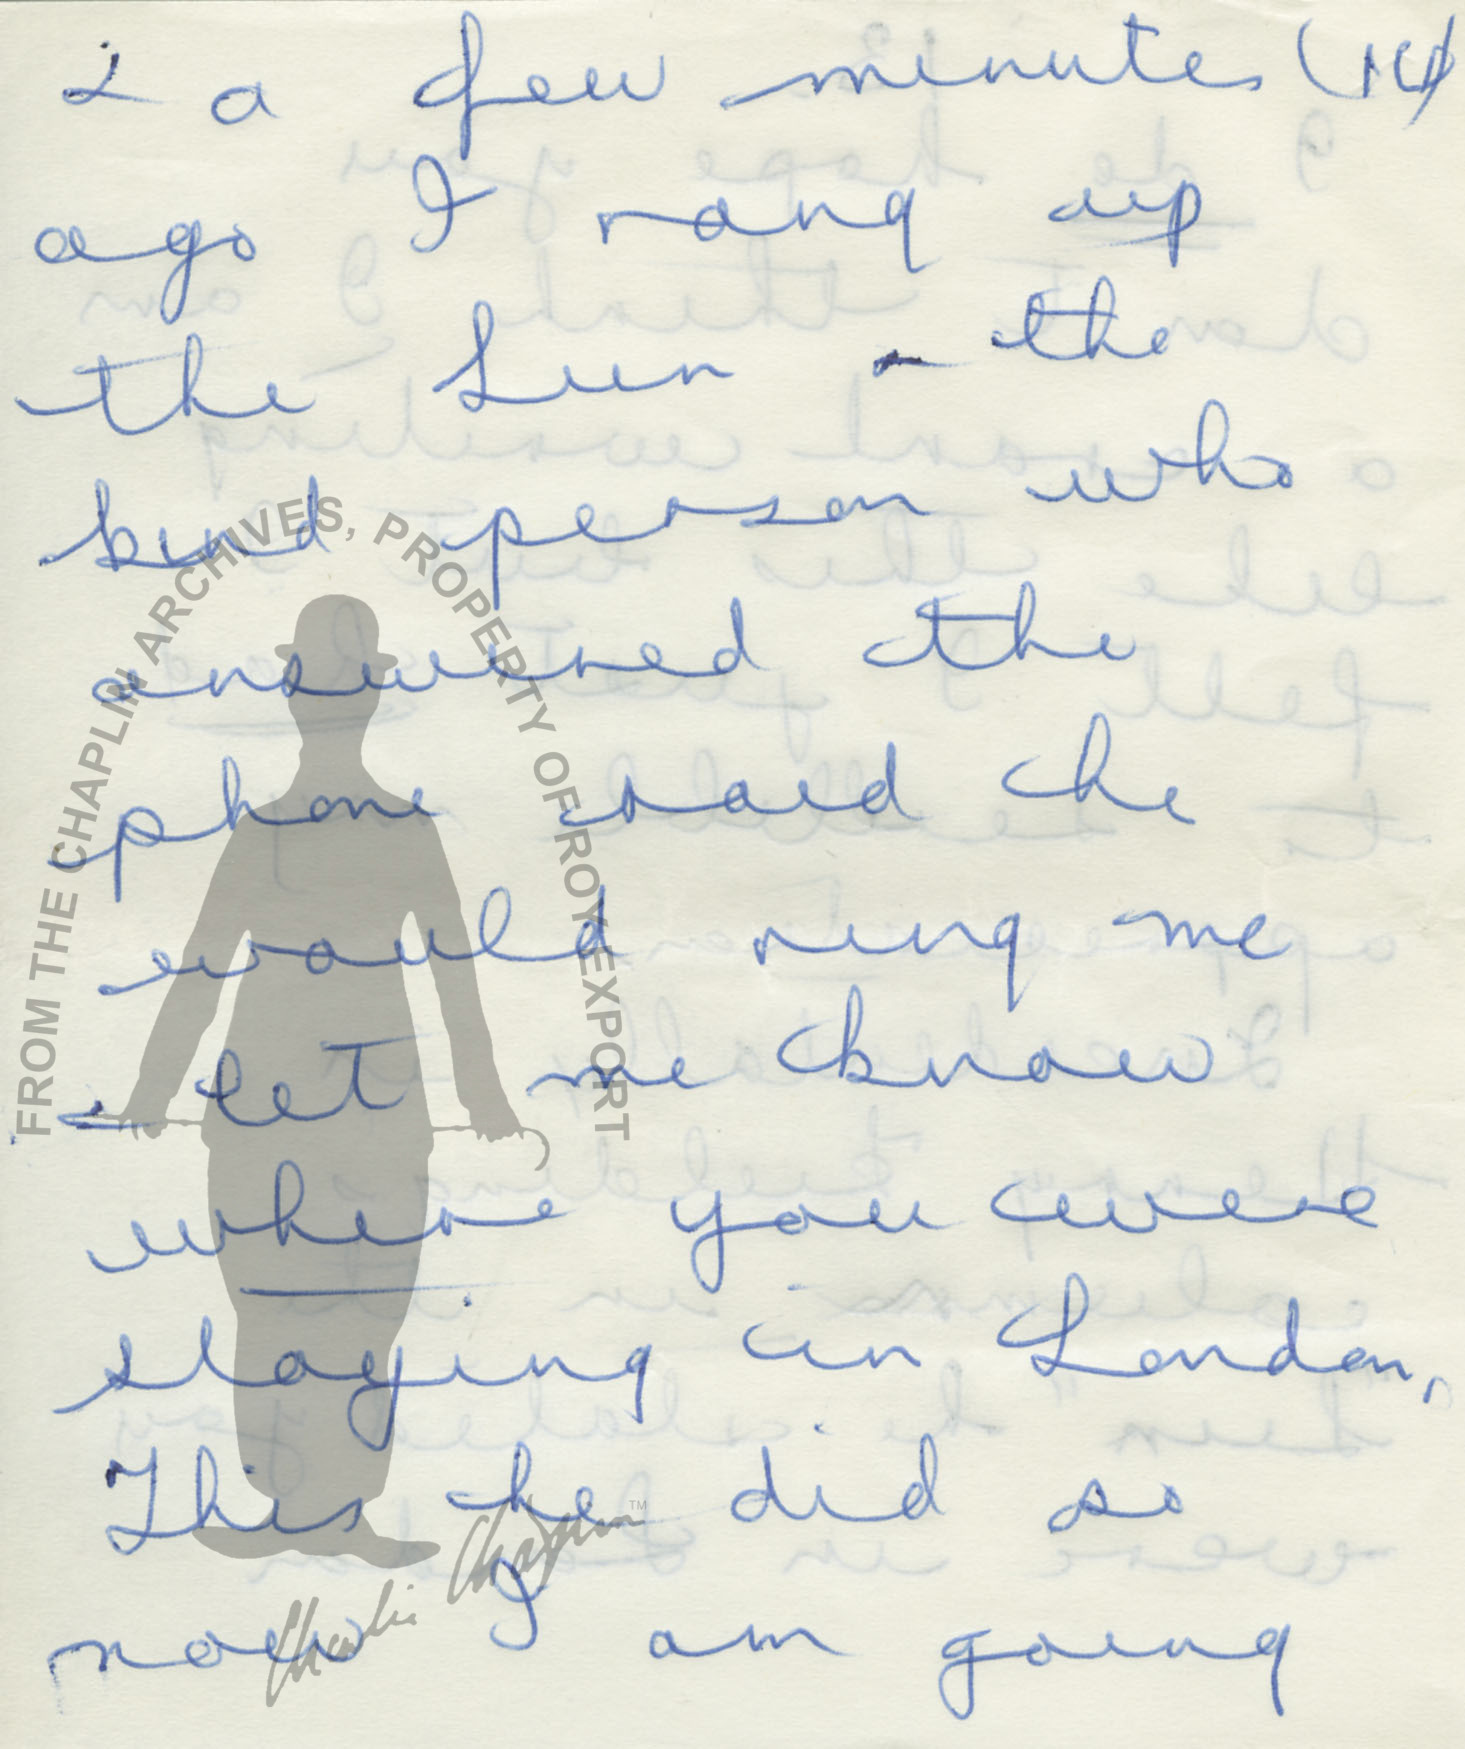 & a few minutes (14)
ago I rang up
the Sun - the
kind person who
answered the
phone said he
would ring me
& let me know
where you were
staying in London,
This he did so
now I am going
FROM THE CHAPLIN ARCHIVES, PROPERTY OF ROY EXPORT
Charlie Chaplin ™